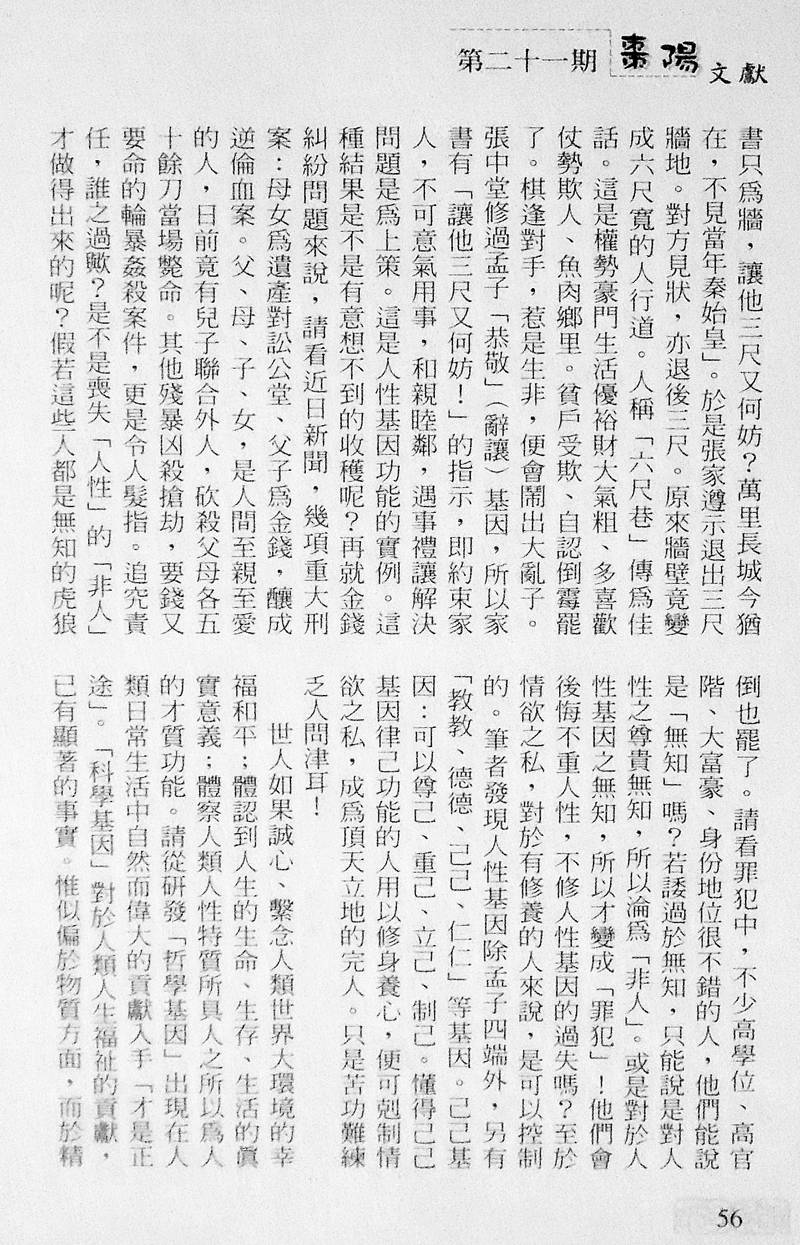 第二十一期 棗陽文獻
書只爲牆，讓他三尺又何妨？萬里長城今猶
在，不見當年秦始皇」。於是張家遵示退出三尺
牆地。對方見狀，亦退後三尺。原來牆壁竟變
成六尺寬的人行道。人稱「六尺巷」傳爲佳
話。這是權勢豪門生活優裕財大氣粗、多喜歡
仗勢欺人、魚肉鄉里。貧戶受欺、自認倒霉罷
了。棋逢對手，惹是生非，便會鬧出大亂子。
張中堂修過孟子「恭敬」（辭讓）基因，所以家
書有「讓他三尺又何妨！」的指示，即約束家
人，不可意氣用事，和親睦鄰，遇事禮讓解決
問題是爲上策。這是人性基因功能的實例。這
種結果是不是有意想不到的收穫呢？再就金錢
糾紛問題來說，請看近日新聞，幾項重大刑
案：母女爲遺產對訟公堂、父子爲金錢，釀成
逆倫血案。父、母、子、女，是人間至親至愛
的人，日前竟有兒子聯合外人，砍殺父母各五
十餘刀當場斃命。其他殘暴凶殺搶劫，要錢又
要命的輪暴姦殺案件，更是令人髮指。追究責
任，誰之過歟？是不是喪失「人性」的「非人」
才做得出來的呢？假若這些人都是無知的虎狼
倒也罷了。請看罪犯中，不少高學位、高官
階、大富豪、身份地位很不錯的人，他們能說
是「無知」嗎？若諉過於無知，只能說是對人
性之尊貴無知，所以淪爲「非人」。或是對於人
性基因之無知，所以才變成「罪犯」！他們會
後悔不重人性，不修人性基因的過失嗎？至於
情欲之私，對於有修養的人來說，是可以控制
的。筆者發現人性基因除孟子四端外，另有
「教教、德德、己己、仁仁」等基因。己己基
因：可以尊己、重己、立己、制己。懂得己己
基因律己功能的人用以修身養心，便可剋制情
欲之私，成爲頂天立地的完人。只是苦功難練
乏人問津耳！
世人如果誠心、繫念人類世界大環境的幸
福和平；體認到人生的生命、生存、生活的眞
實意義；體察人類人性特質所具人之所以爲人
的才質功能。請從研發「哲學基因」出現在人
類日常生活中自然而偉大的貢獻入手「才是正
途」。「科學基因」對於人類人生福祉的貢獻，
已有顯著的事實。惟似偏於物質方面，而於精
56